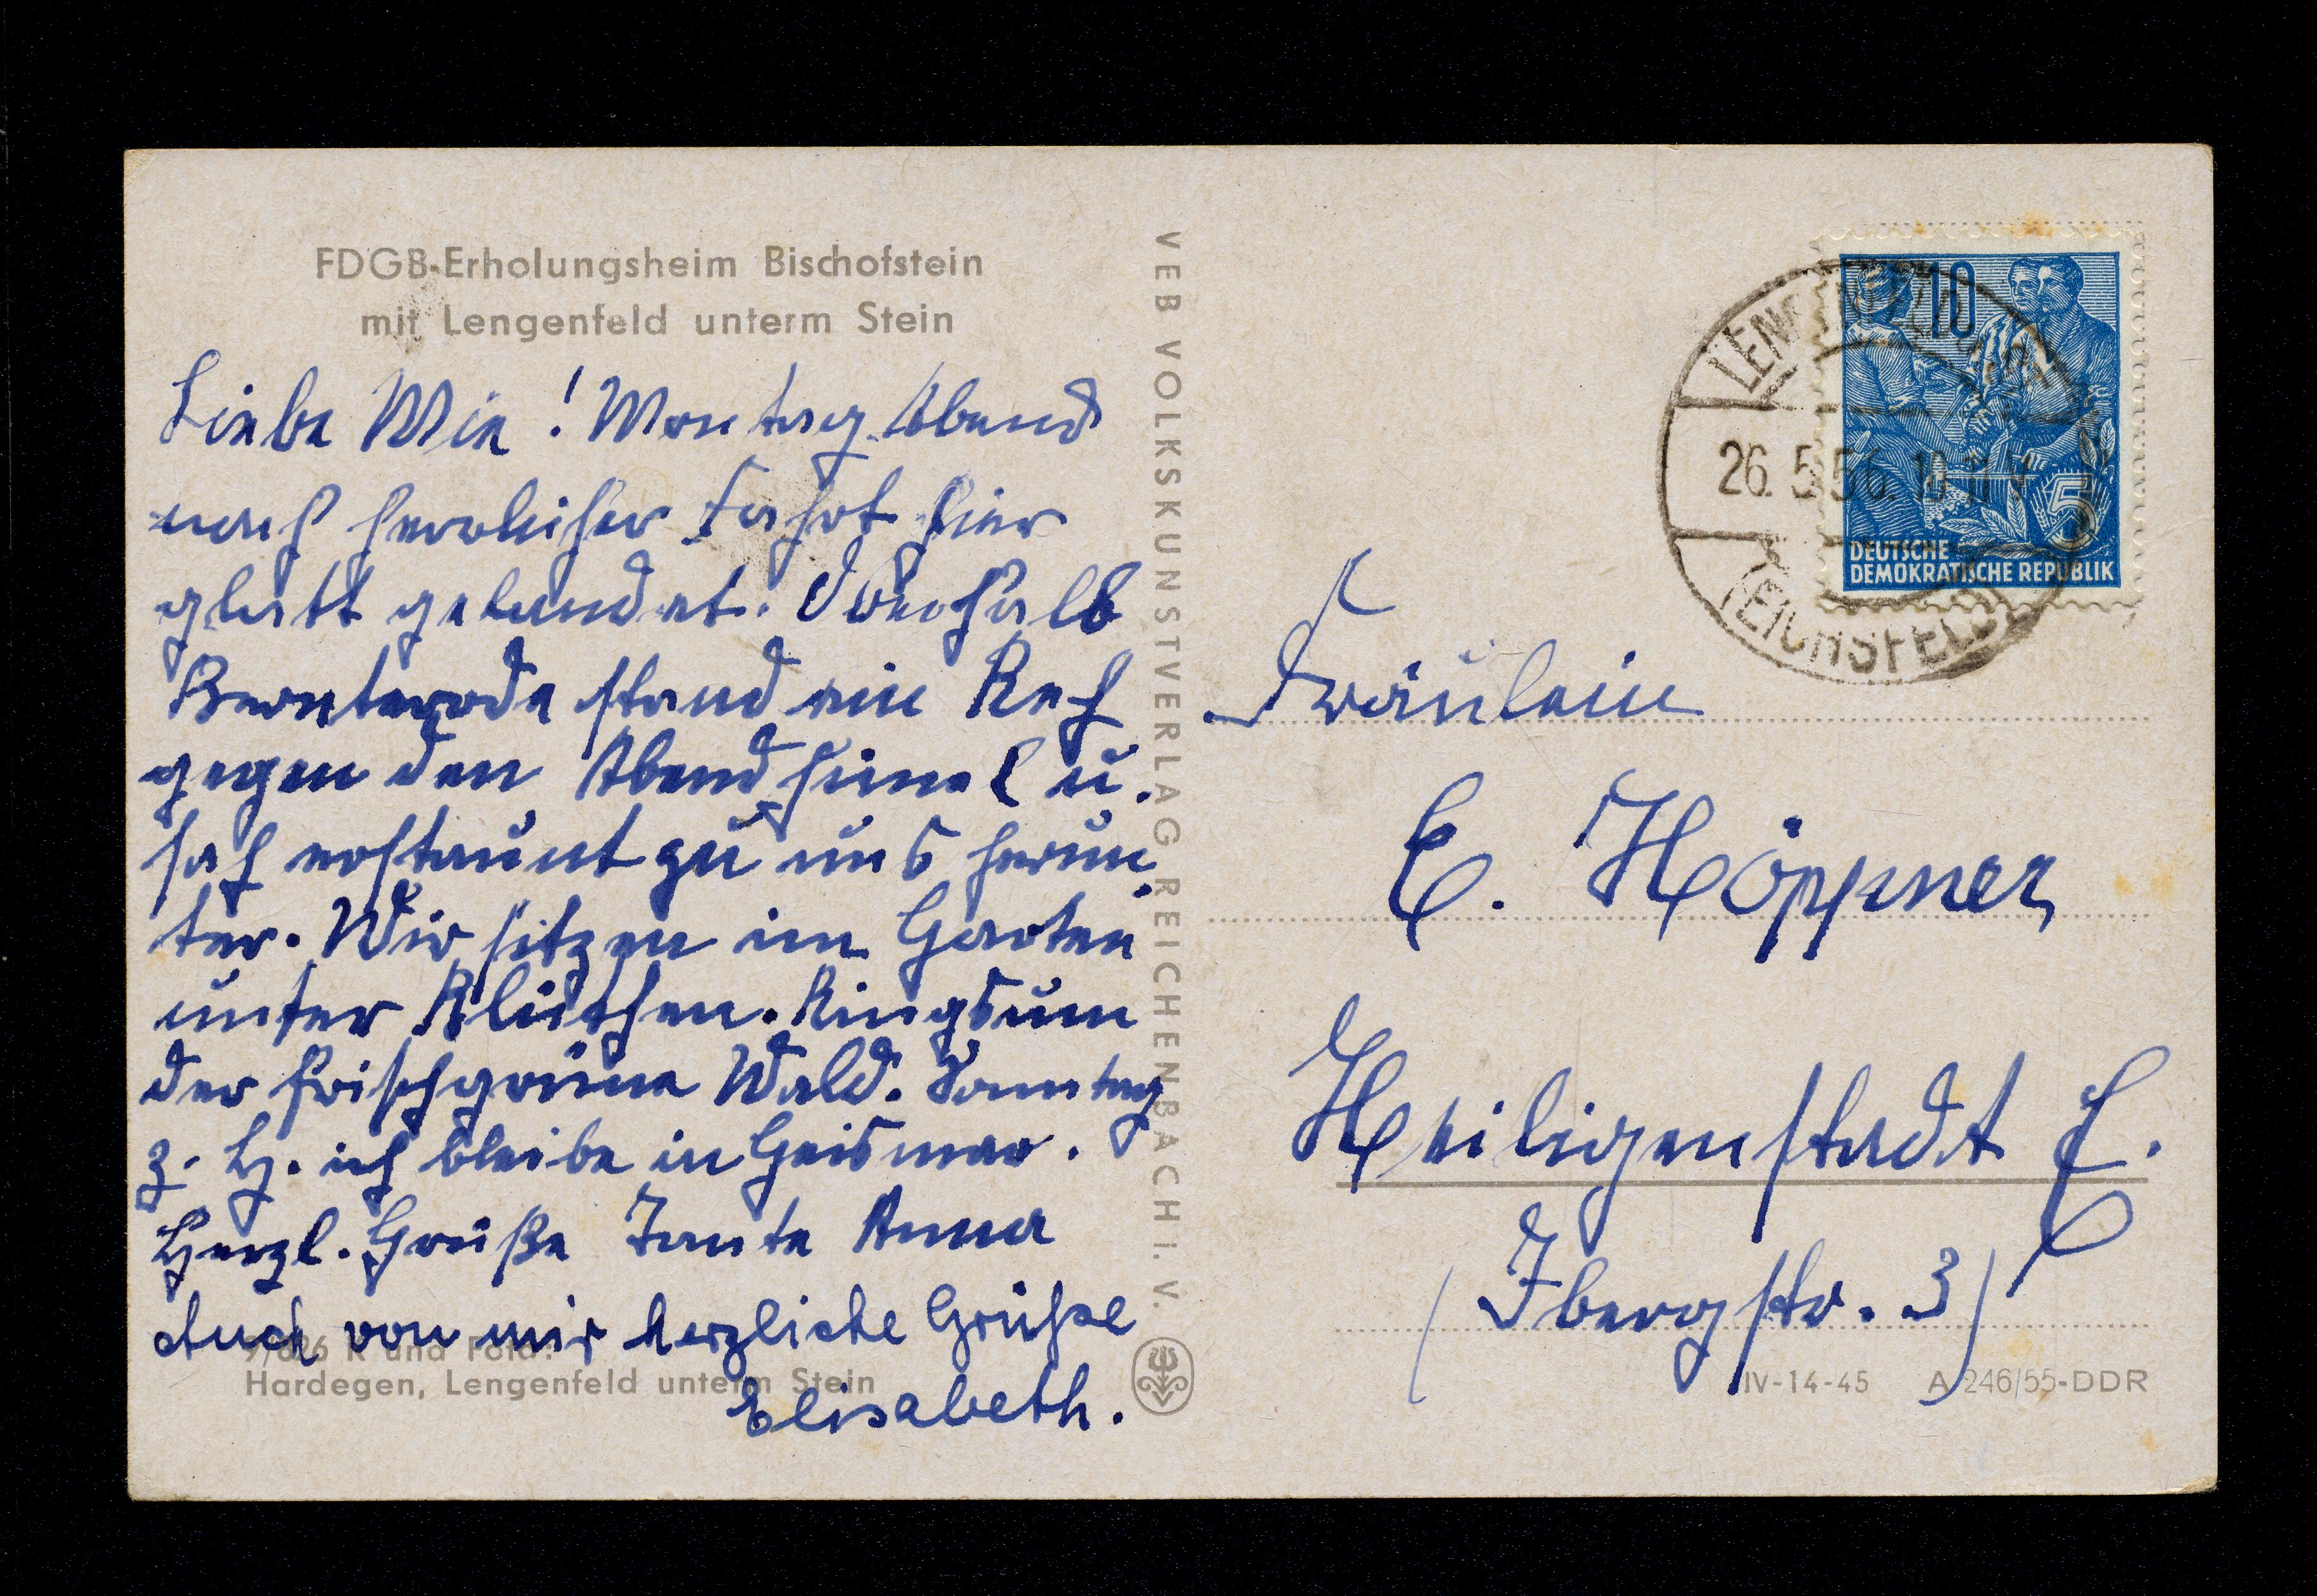 FDGB-Erholungsheim Bischofstein
mit Lengenfeld unterm Stein
Liebe Mie! Montag Abend
nach herrlicher Fahrt hier
glatt gelandet. Oberhalb
Bernterode stand ein Reh
gegen den Abendhimel u.
sah erstaunt zu uns herun
ter. Wir sitzen im Garten
unter Blüthen. Ringsum
der frischgrüne Wald. Sonntag
z. H. ich bleibe in Geismar.
Herzl. Grüße Tante Anna
Auch von mir herzliche Grüße
Elisabeth.
9/826 K und Foto:
Hardegen, Lengenfeld unterm Stein
VEB VOLKSKUNSTVERLAG REICHENBACH I. V.
10
5
DEUTSCHE
DEMOKRATISCHE REPUBLIK
26. 5. 56. 10
EICHSFELD
Fräulein
E. Höppner
Heiligenstadt E.
(Ibergstr. 3)
IV-14-45 A 246/55-DDR